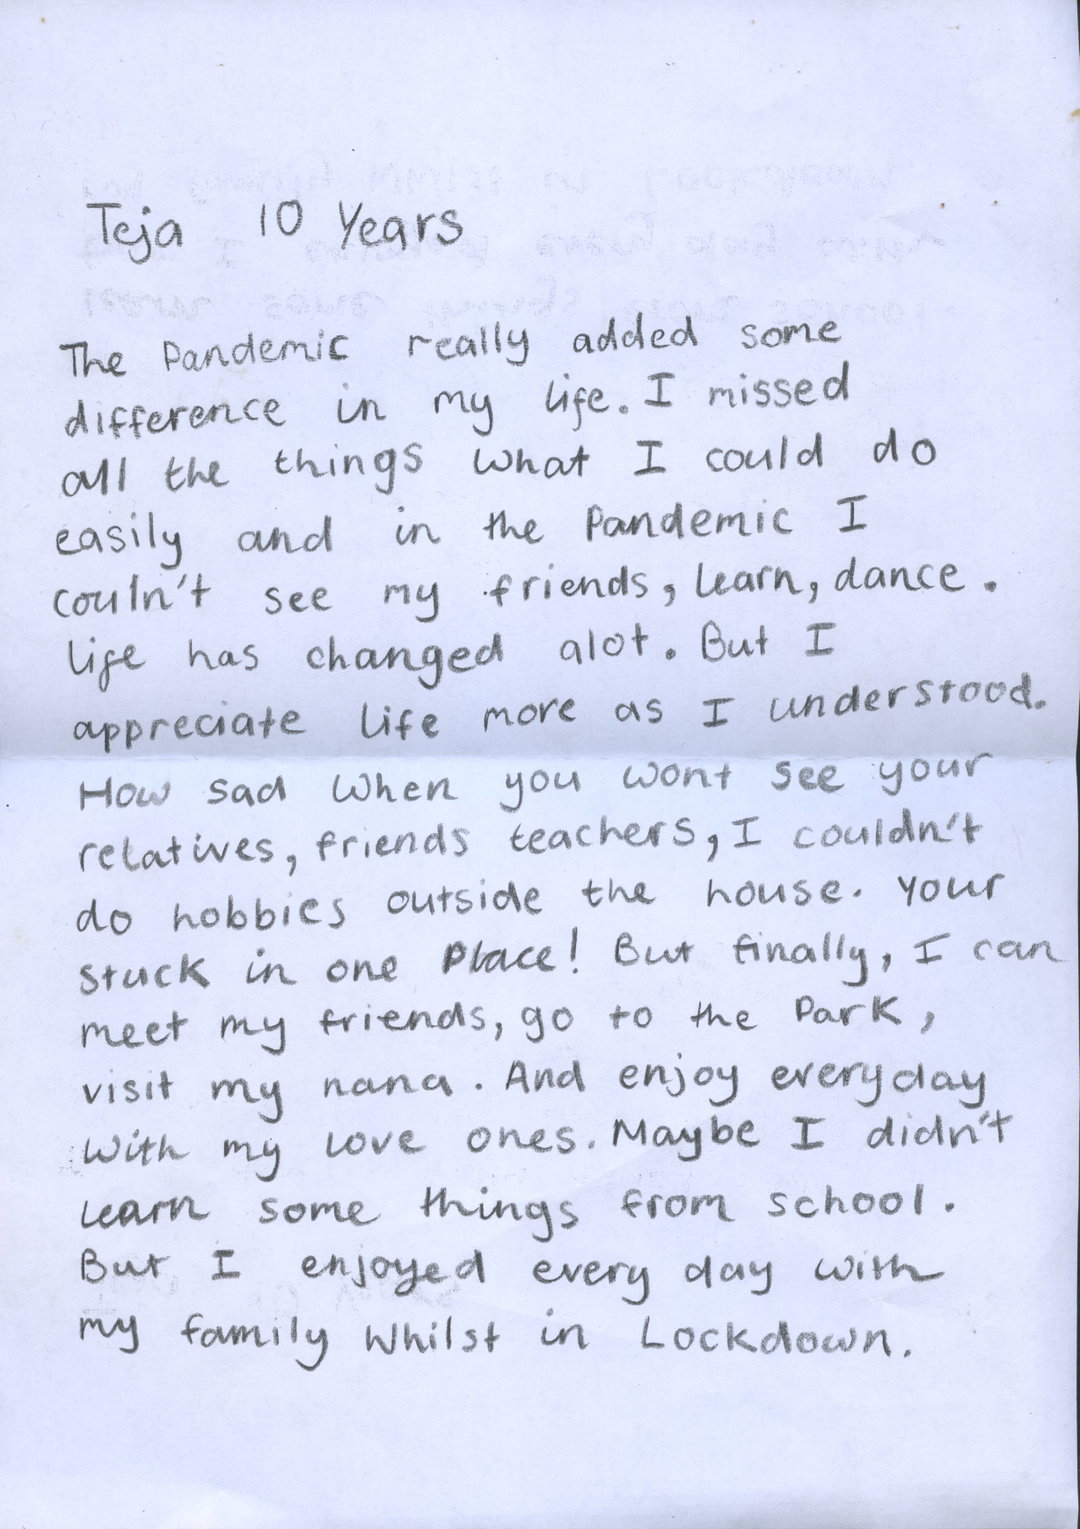 Teja 10 Years
The Pandemic really added some
difference in my life. I missed
all the things what I could do
easily and in the Pandemic I
couln't see my friends, learn, dance.
life has changed alot. But I
appreciate life more as I understood.
How sad when you wont see your
relatives, friends teachers, I couldn't
do hobbies outside the house. Your
stuck in one Place! But finally, I can
meet my friends, go to the Park,
visit my nana. And enjoy everyday
with my love ones. Maybe I didn't
learn some things from school.
But I enjoyed every day with
my family whilst in Lockdown.